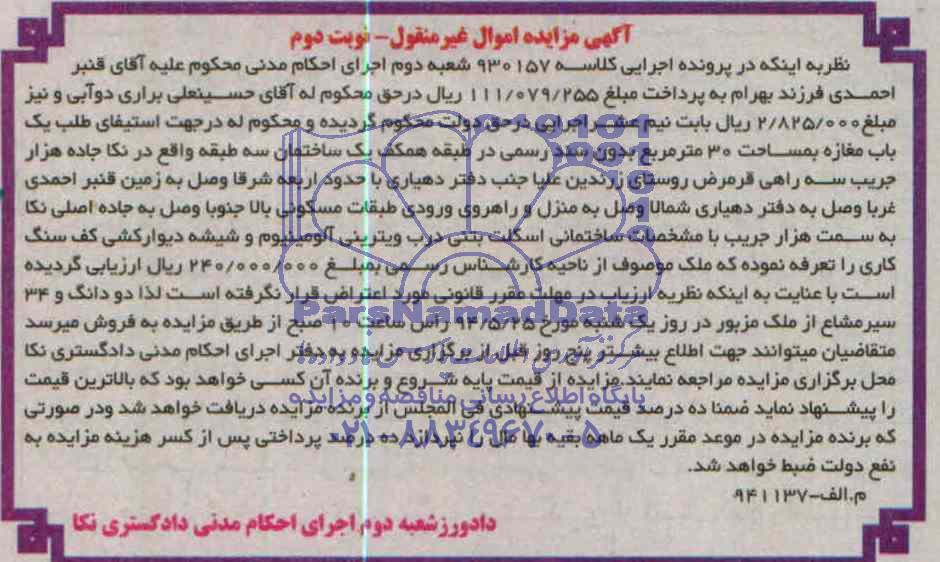 آگهی مزایده اموال غیرمنقول- نوبت دوم
نظربه اینکه در پرونده اجرایی کلاسه ۹۳۰۱۵۷ شعبه دوم اجرای احکام مدنی محکوم علیه آقای قنبر
احمدی فرزند بهرام به پرداخت مبلغ ۱۱۱/۰۷۹/۲۵۵ ریال درحق محکوم له آقای حسینعلی براری دوآبی و نیز
مبلغ ۲/۸۲۵/۰۰۰ ریال بابت نیم عشر اجرایی درحق دولت محکوم گردیده و محکوم له درجهت استیفای طلب یک
باب مغازه بمساحت ۳۰ مترمربع بدون سند رسمی در طبقه همکف یک ساختمان سه طبقه واقع در نکا جاده هزار
جریب سه راهی قرمرض روستای زرندین علیا جنب دفتر دهیاری با حدود اربعه شرقا وصل به زمین قنبر احمدی
غربا وصل به دفتر دهیاری شمالا وصل به منزل و راهروی ورودی طبقات مسکونی بالا جنوبا وصل به جاده اصلی نکا
به سمت هزار جریب با مشخصات ساختمانی اسکلت بتنی درب ویترینی آلومینیوم و شیشه دیوارکشی کف سنگ
کاری را تعرفه نموده که ملک موصوف از ناحیه کارشناس رسمی بمبلغ ۲۴۰/۰۰۰/۰۰۰ ریال ارزیابی گردیده
است با عنایت به اینکه نظریه ارزیاب در مهلت مقرر قانونی مورد اعتراض قرار نگرفته است لذا دو دانگ و ۳۴
سیرمشاع از ملک مزبور در روز یک شنبه مورخ ۹۴/۵/۲۵ راس ساعت ۱۰ صبح از طریق مزایده به فروش میرسد
متقاضیان میتوانند جهت اطلاع بیشتر پنج روز قبل از برگزاری مزایده به دفتر اجرای احکام مدنی دادگستری نکا
محل برگزاری مزایده مراجعه نمایند.مزایده از قیمت پایه شروع و برنده آن کسی خواهد بود که بالاترین قیمت
را پیشنهاد نماید ضمنا ده درصد قیمت پیشنهادی فی المجلس از برنده مزایده دریافت خواهد شد ودر صورتی
که برنده مزایده در موعد مقرر یک ماهه بقیه بها مال را نپردازد ده درصد پرداختی پس از کسر هزینه مزایده به
نفع دولت ضبط خواهد شد.
م.الف-۹۴۱۱۳۷
دادورزشعبه دوم اجرای احکام مدنی دادگستری نکا
ParsNamadData
پایگاه اطلاع رسانی مناقصه و مزایده
۰۲۱-۸۸۳۴۹۶۷۰-۵